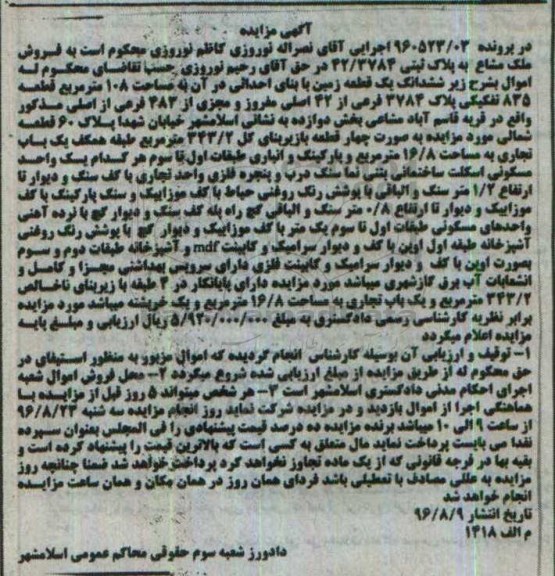 آگهی مزایده
در پرونده ۹۶۰۵۲۳/۰۳ اجرایی آقای نصراله نوروزی کاظم نوروزی محکوم است به فروش
ملک مشاع به پلاک ثبتی ۴۲/۳۷۸۴ در حق آقای رحیم نوروزی حسب تقاضای محکوم له
اموال بشرح زیر ششدانگ یک قطعه زمین با بنای احداثی در آن به مساحت ۱۰۸ مترمربع قطعه
۸۳۵ تفکیکی پلاک ۳۷۸۴ فرعی از ۴۲ اصلی مفروز و مجزی از ۴۸۳ فرعی از اصلی مذکور
واقع در قریه قاسم آباد مشاعی بخش دوازده به نشانی اسلامشهر خیابان شهدا پلاک ۶۰ قطعه
شمالی مورد مزایده به صورت چهار قطعه بازیربنای کل ۳۴۳/۲ مترمربع طبقه همکف یک باب
تجاری به مساحت ۱۶/۸ مترمربع و پارکینگ و انباری طبقات اول تا سوم هر کدام یک واحد
مسکونی اسکلت ساختمانی بتنی نما سنگ درب و پنجره فلزی واحد تجاری با کف سنگ و دیوار تا
ارتفاع ۱/۲ متر سنگ و الباقی با پوشش رنگ روغنی حیاط با کف موزاییک و سنگ پارکینگ با کف
موزاییک و دیوار تا ارتفاع ۰/۸ متر سنگ و الباقی گچ راه پله کف سنگ و دیوار گچ با نرده آهنی
واحدهای مسکونی طبقات اول تا سوم یک متر با کف موزاییک و دیوار گچ با پوشش رنگ روغنی
آشپزخانه طبقه اول اوپن با کف و دیوار سرامیک و کابینت mdf و آشپزخانه طبقات دوم و سوم
بصورت اوپن با کف و دیوار سرامیک و کابینت فلزی دارای سرویس بهداشتی مجزا و کامل و
انشعابات آب برق گازشهری میباشد مورد مزایده دارای پایانکار در ۴ طبقه با زیربنای ناخالص
۳۴۳/۲ مترمربع و یک باب تجاری به مساحت ۱۶/۸ مترمربع و یک خرپشته میباشد مورد مزایده
برابر نظریه کارشناسی رسمی دادگستری به مبلغ ۵/۹۲۰/۰۰۰/۰۰۰ ریال ارزیابی و مبلغ پایه
مزایده اعلام میگردد
۱- توقیف و ارزیابی آن بوسیله کارشناس انجام گردیده که اموال مزبور به منظور استیفای در
حق محکوم که از طریق مزایده از مبلغ ارزیابی شده شروع میگردد ۲- محل فروش اموال شعبه
اجرای احکام مدنی دادگستری اسلامشهر است ۳- هر شخص میتواند ۵ روز قبل از مزایده با
هماهنگی اجرا از اموال بازدید و در مزایده شرکت نماید روز انجام مزایده سه شنبه ۹۶/۸/۲۳
از ساعت ۹ الی ۱۰ میباشد برنده مزایده ده درصد قیمت پیشنهادی را فی المجلس بعنوان سپرده
نقدا می بایست پرداخت نماید مال متعلق به کسی است که بالاترین قیمت را پیشنهاد کرده است و
بقیه بها در فرجه قانونی که از یک ماده تجاوز نخواهد کرد پرداخت خواهد شد ضمنا چنانچه روز
مزایده به عللی مصادف با تعطیلی باشد فردای همان روز در همان مکان و همان ساعت مزایده
انجام خواهد شد
تاریخ انتشار ۹۶/۸/۹
م الف ۱۴۱۸
دادورز شعبه سوم حقوقی محاکم عمومی اسلامشهر